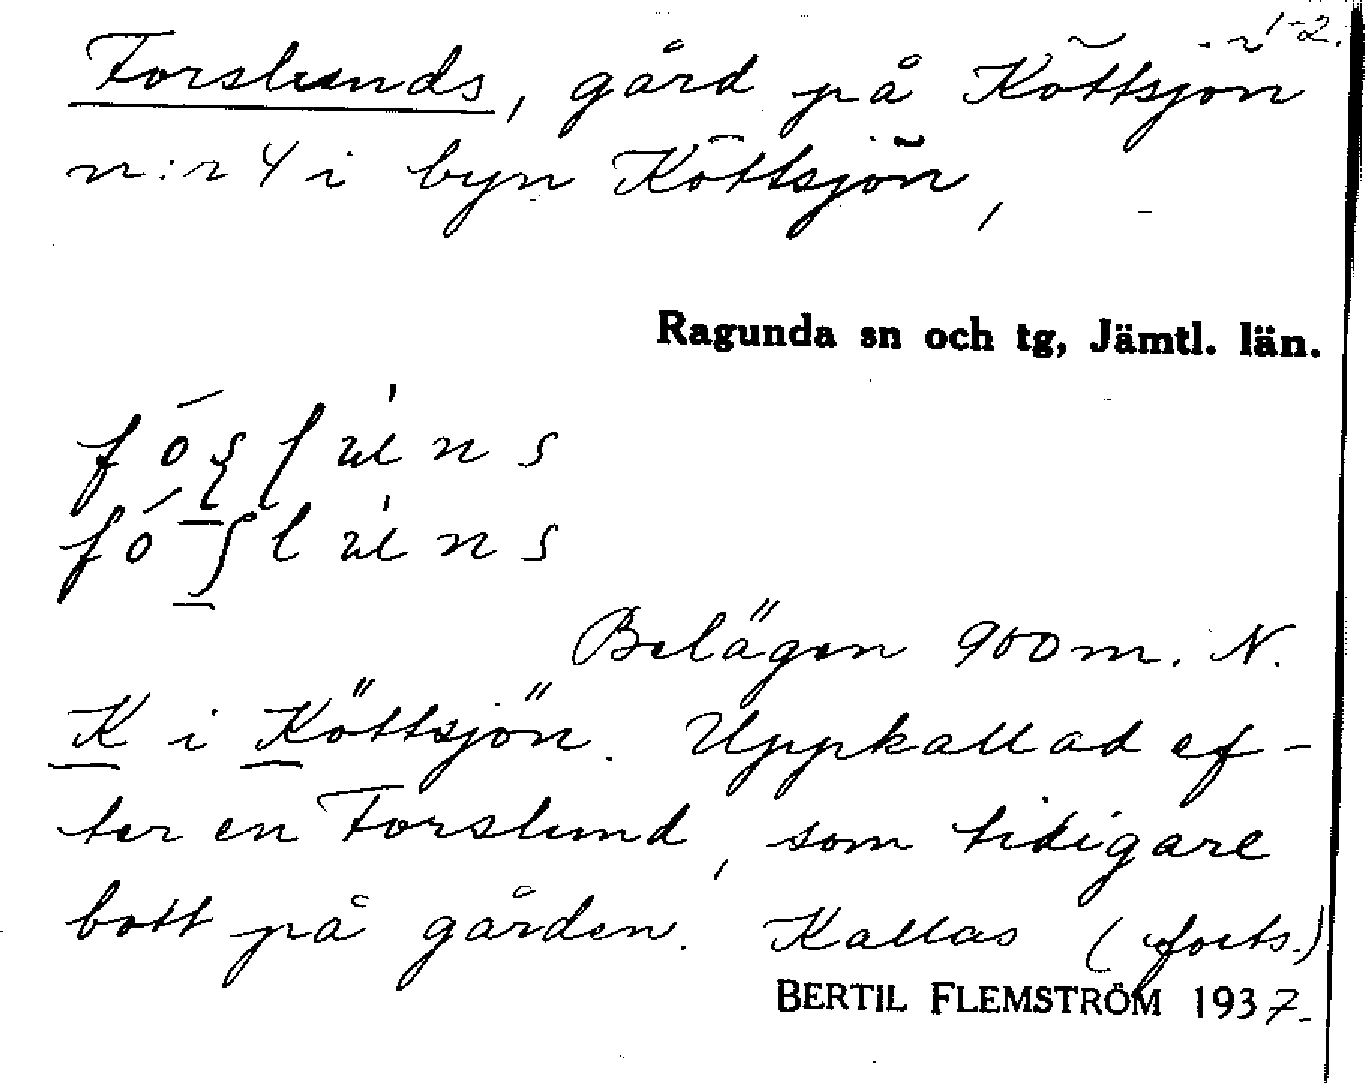 1-2.
Forslunds, gård på Köttsjön
n:r 4 i byn Köttsjön,
Ragunda sn och tg, Jämtl. län.
Belägen 900 m. N.
K i Köttsjön. Uppkallad ef-
ter en Forslund, som tidigare
bott på gården. Kallas (forts.)
BERTIL FLEMSTRÖM 1937.